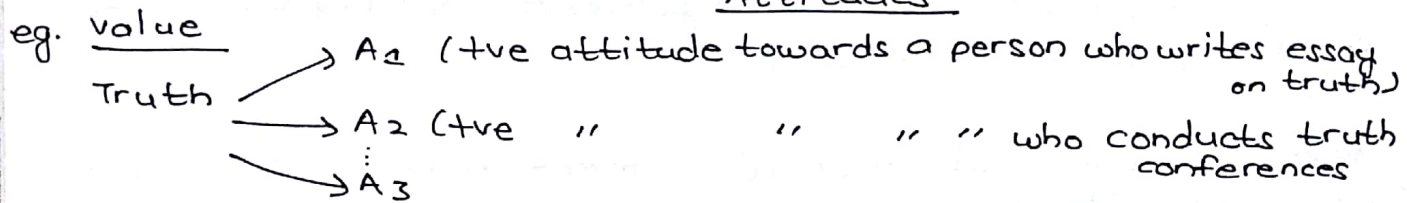 Attitudes
eg. value
Truth → A1 (+ve attitude towards a person who writes essay
on truth)
→ A2 (+ve " " " " who conducts truth
conferences
⋮
→ A3